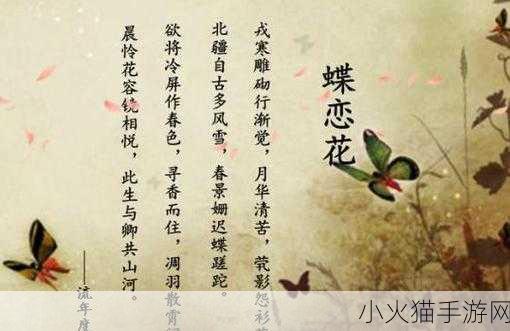 蝶恋花
戎寒雕砌行渐觉，月华清苦，茕影怨衫
北疆自古多风雪，春景姗迟蝶蹉跎。
欲将冷屏作春色，寻香而住，凋羽散霄
晨怜花容镜相悦，此生与卿共山河。
——流年度
小火猫手游网